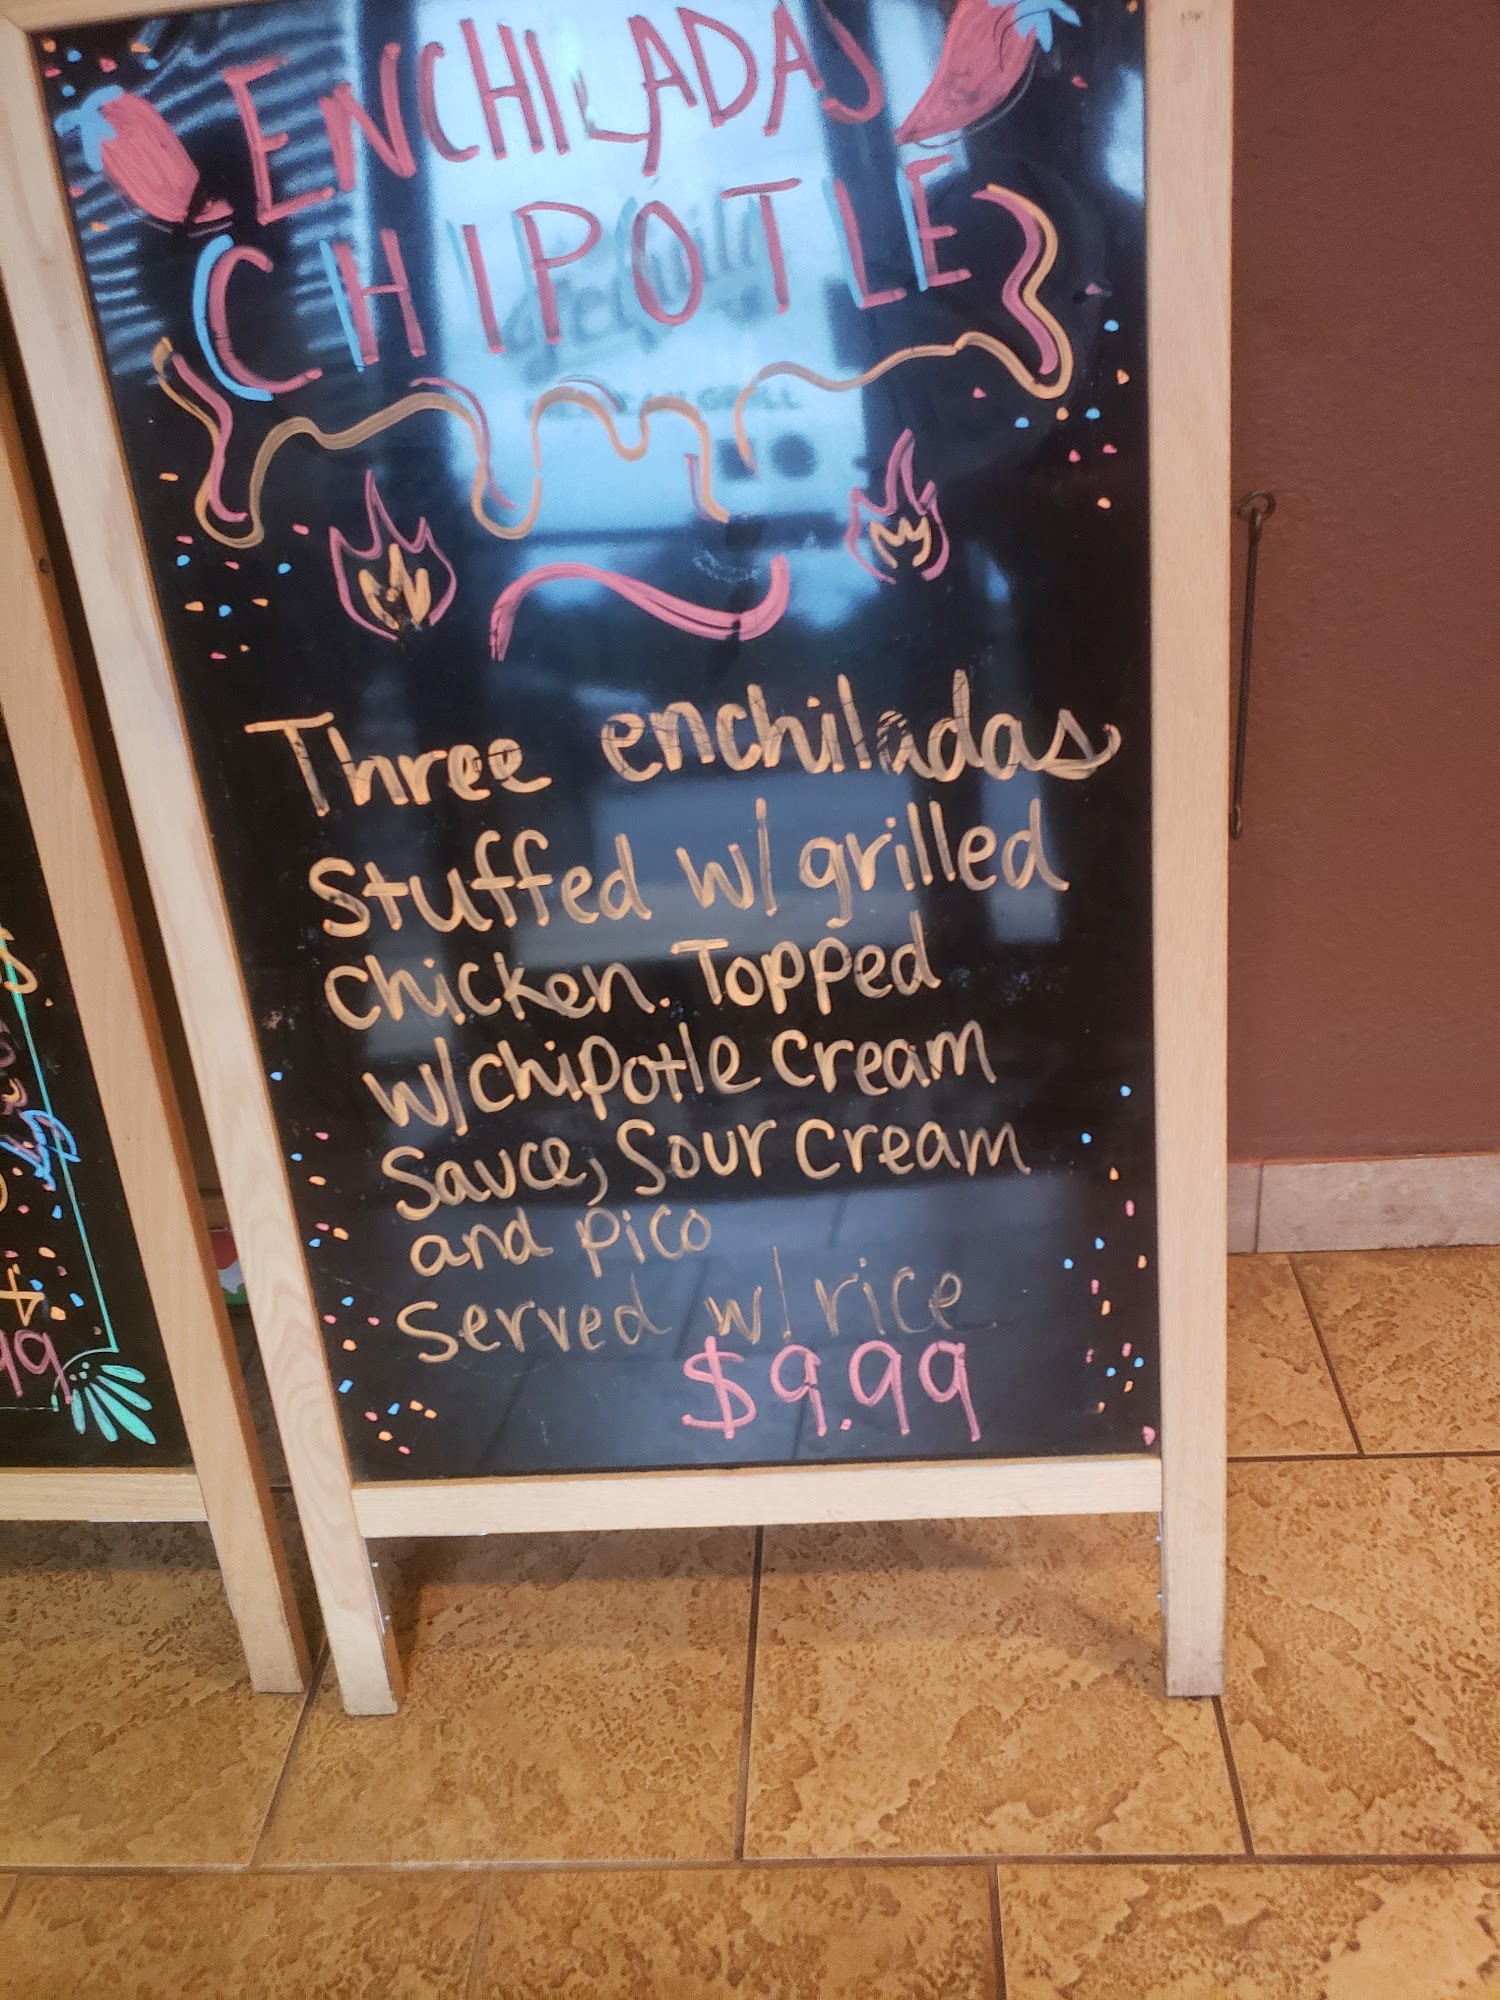 ENCHILADAS
CHIPOTLE
Three enchiladas
Stuffed w/ grilled
chicken. Topped
w/chipotle cream
Sauce, Sour cream
and pico
Served w/ rice
$9.99
99